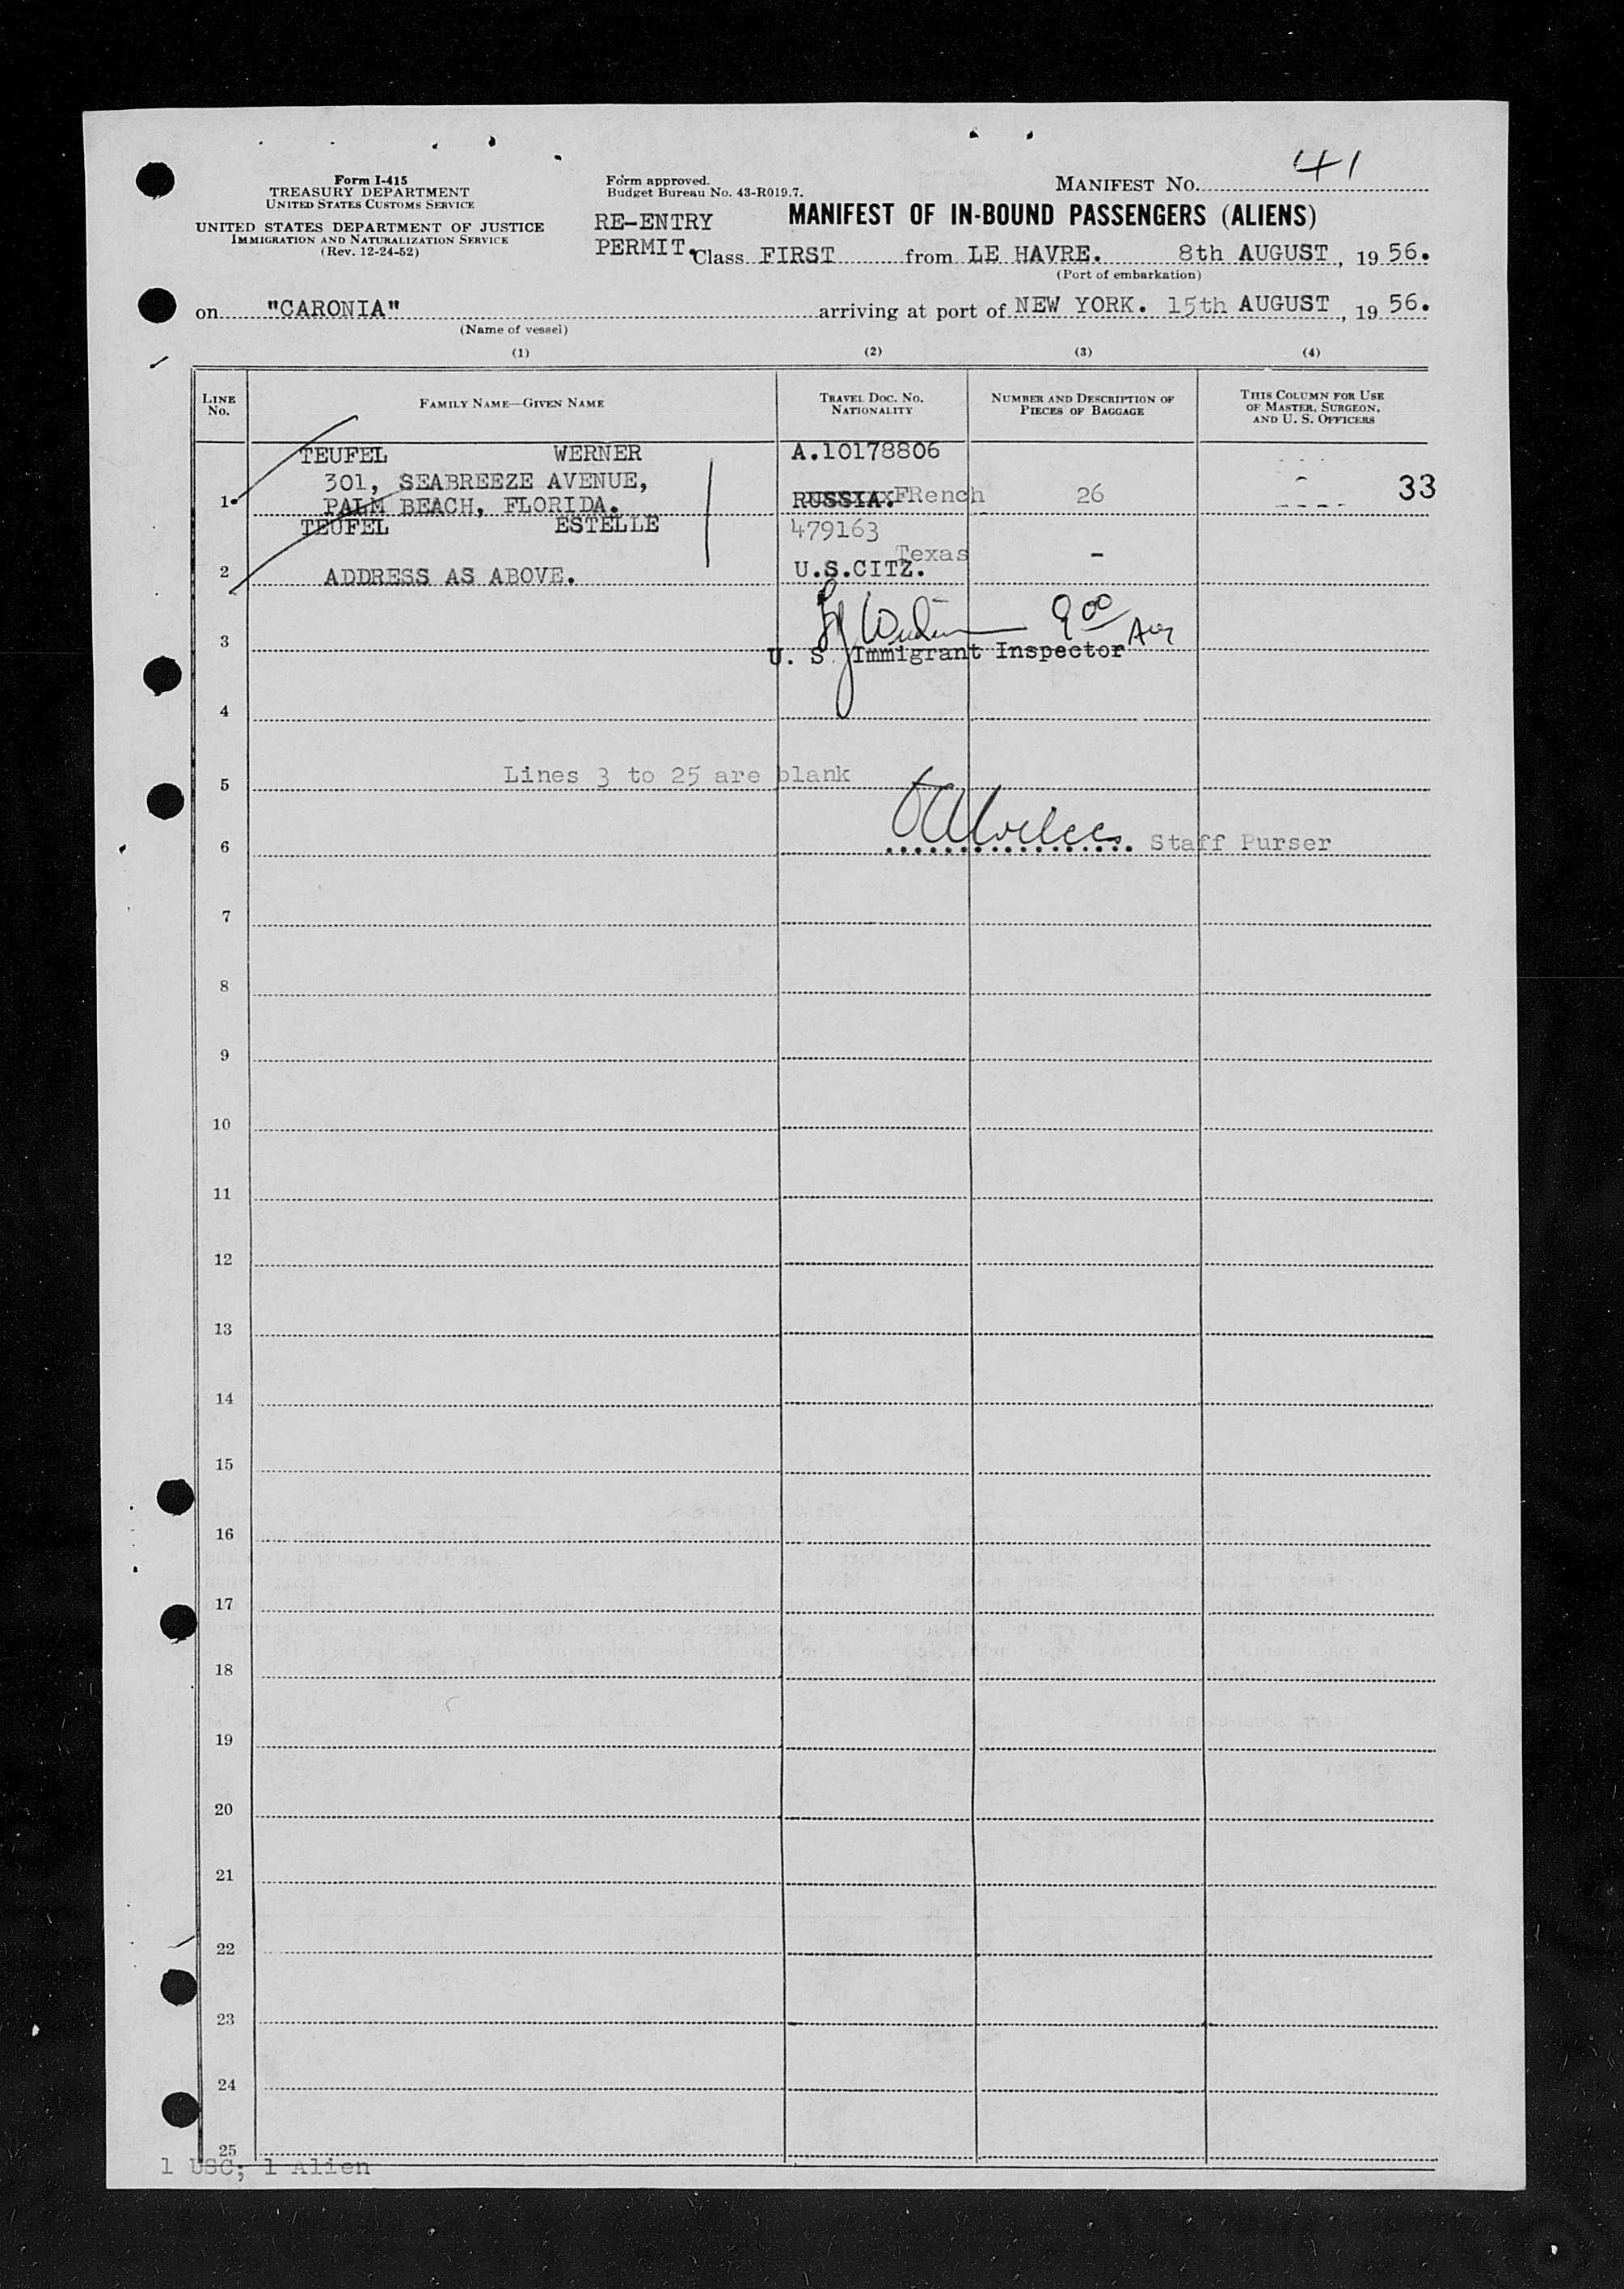 41
Form I-415
TREASURY DEPARTMENT
UNITED STATES CUSTOMS SERVICE
UNITED STATES DEPARTMENT OF JUSTICE
IMMIGRATION AND NATURALIZATION SERVICE
(Rev. 12-24-52)
Form approved.
Budget Bureau No. 43-R019.7.
MANIFEST NO.
RE-ENTRY
PERMIT.
MANIFEST OF IN-BOUND PASSENGERS (ALIENS)
Class FIRST from LE HAVRE. 8th AUGUST, 19 56.
(Port of embarkation)
on "CARONIA" arriving at port of NEW YORK. 15th AUGUST, 19 56.
(Name of vessel)
(1) (2) (3) (4)
LINE NO.
FAMILY NAME—GIVEN NAME
TRAVEL DOC. NO.
NATIONALITY
NUMBER AND DESCRIPTION OF
PIECES OF BAGGAGE
THIS COLUMN FOR USE
OF MASTER, SURGEON,
AND U. S. OFFICERS
TEUFEL WERNER A.10178806
301, SEABREEZE AVENUE,
1 PALM BEACH, FLORIDA. RUSSIA. FRench 26 33
TEUFEL ESTELLE 479163
Texas
2 ADDRESS AS ABOVE. U.S.CITZ. -
9 00
3 U. S. Immigrant Inspector
4
Lines 3 to 25 are blank
5
6 Staff Purser
7
8
9
10
11
12
13
14
15
16
17
18
19
20
21
22
23
24
25
1 USC; 1 Alien